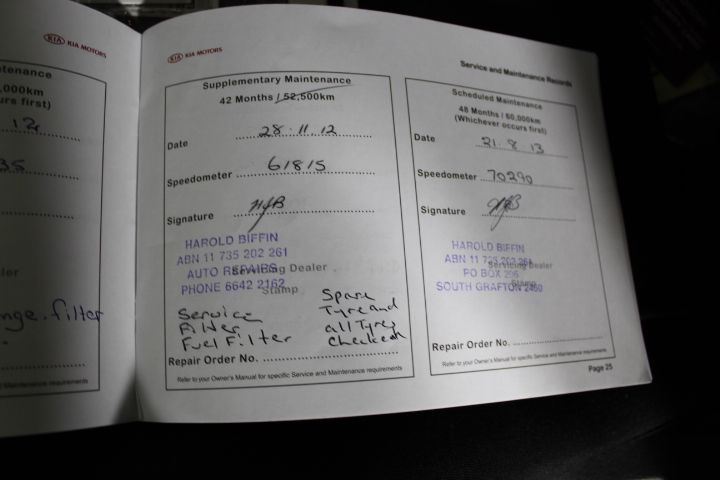 KIA KIA MOTORS
tenance
,000km
urs first)
12
35
ler
nge.filter
Maintenance requirements
KIA KIA MOTORS
Supplementary Maintenance
42 Months / 52,500km
Date 28.11.12
Speedometer 61815
Signature
HAROLD BIFFIN
ABN 11 735 202 261
AUTO REPAIRS
Servicing Dealer
PHONE 6642 2162
Stamp
Service
Filter
Fuel Filter
Spare
Tyre and
all Tyres
checked
Repair Order No.
Refer to your Owner's Manual for specific Service and Maintenance requirements
Service and Maintenance Records
Scheduled Maintenance
48 Months / 60,000km
(Whichever occurs first)
Date 21.8.13
Speedometer 70290
Signature
HAROLD BIFFIN
ABN 11 735 202 261
Servicing Dealer
PO BOX 296
Stamp
SOUTH GRAFTON 2460
Repair Order No.
Refer to your Owner's Manual for specific Service and Maintenance requirements
Page 25